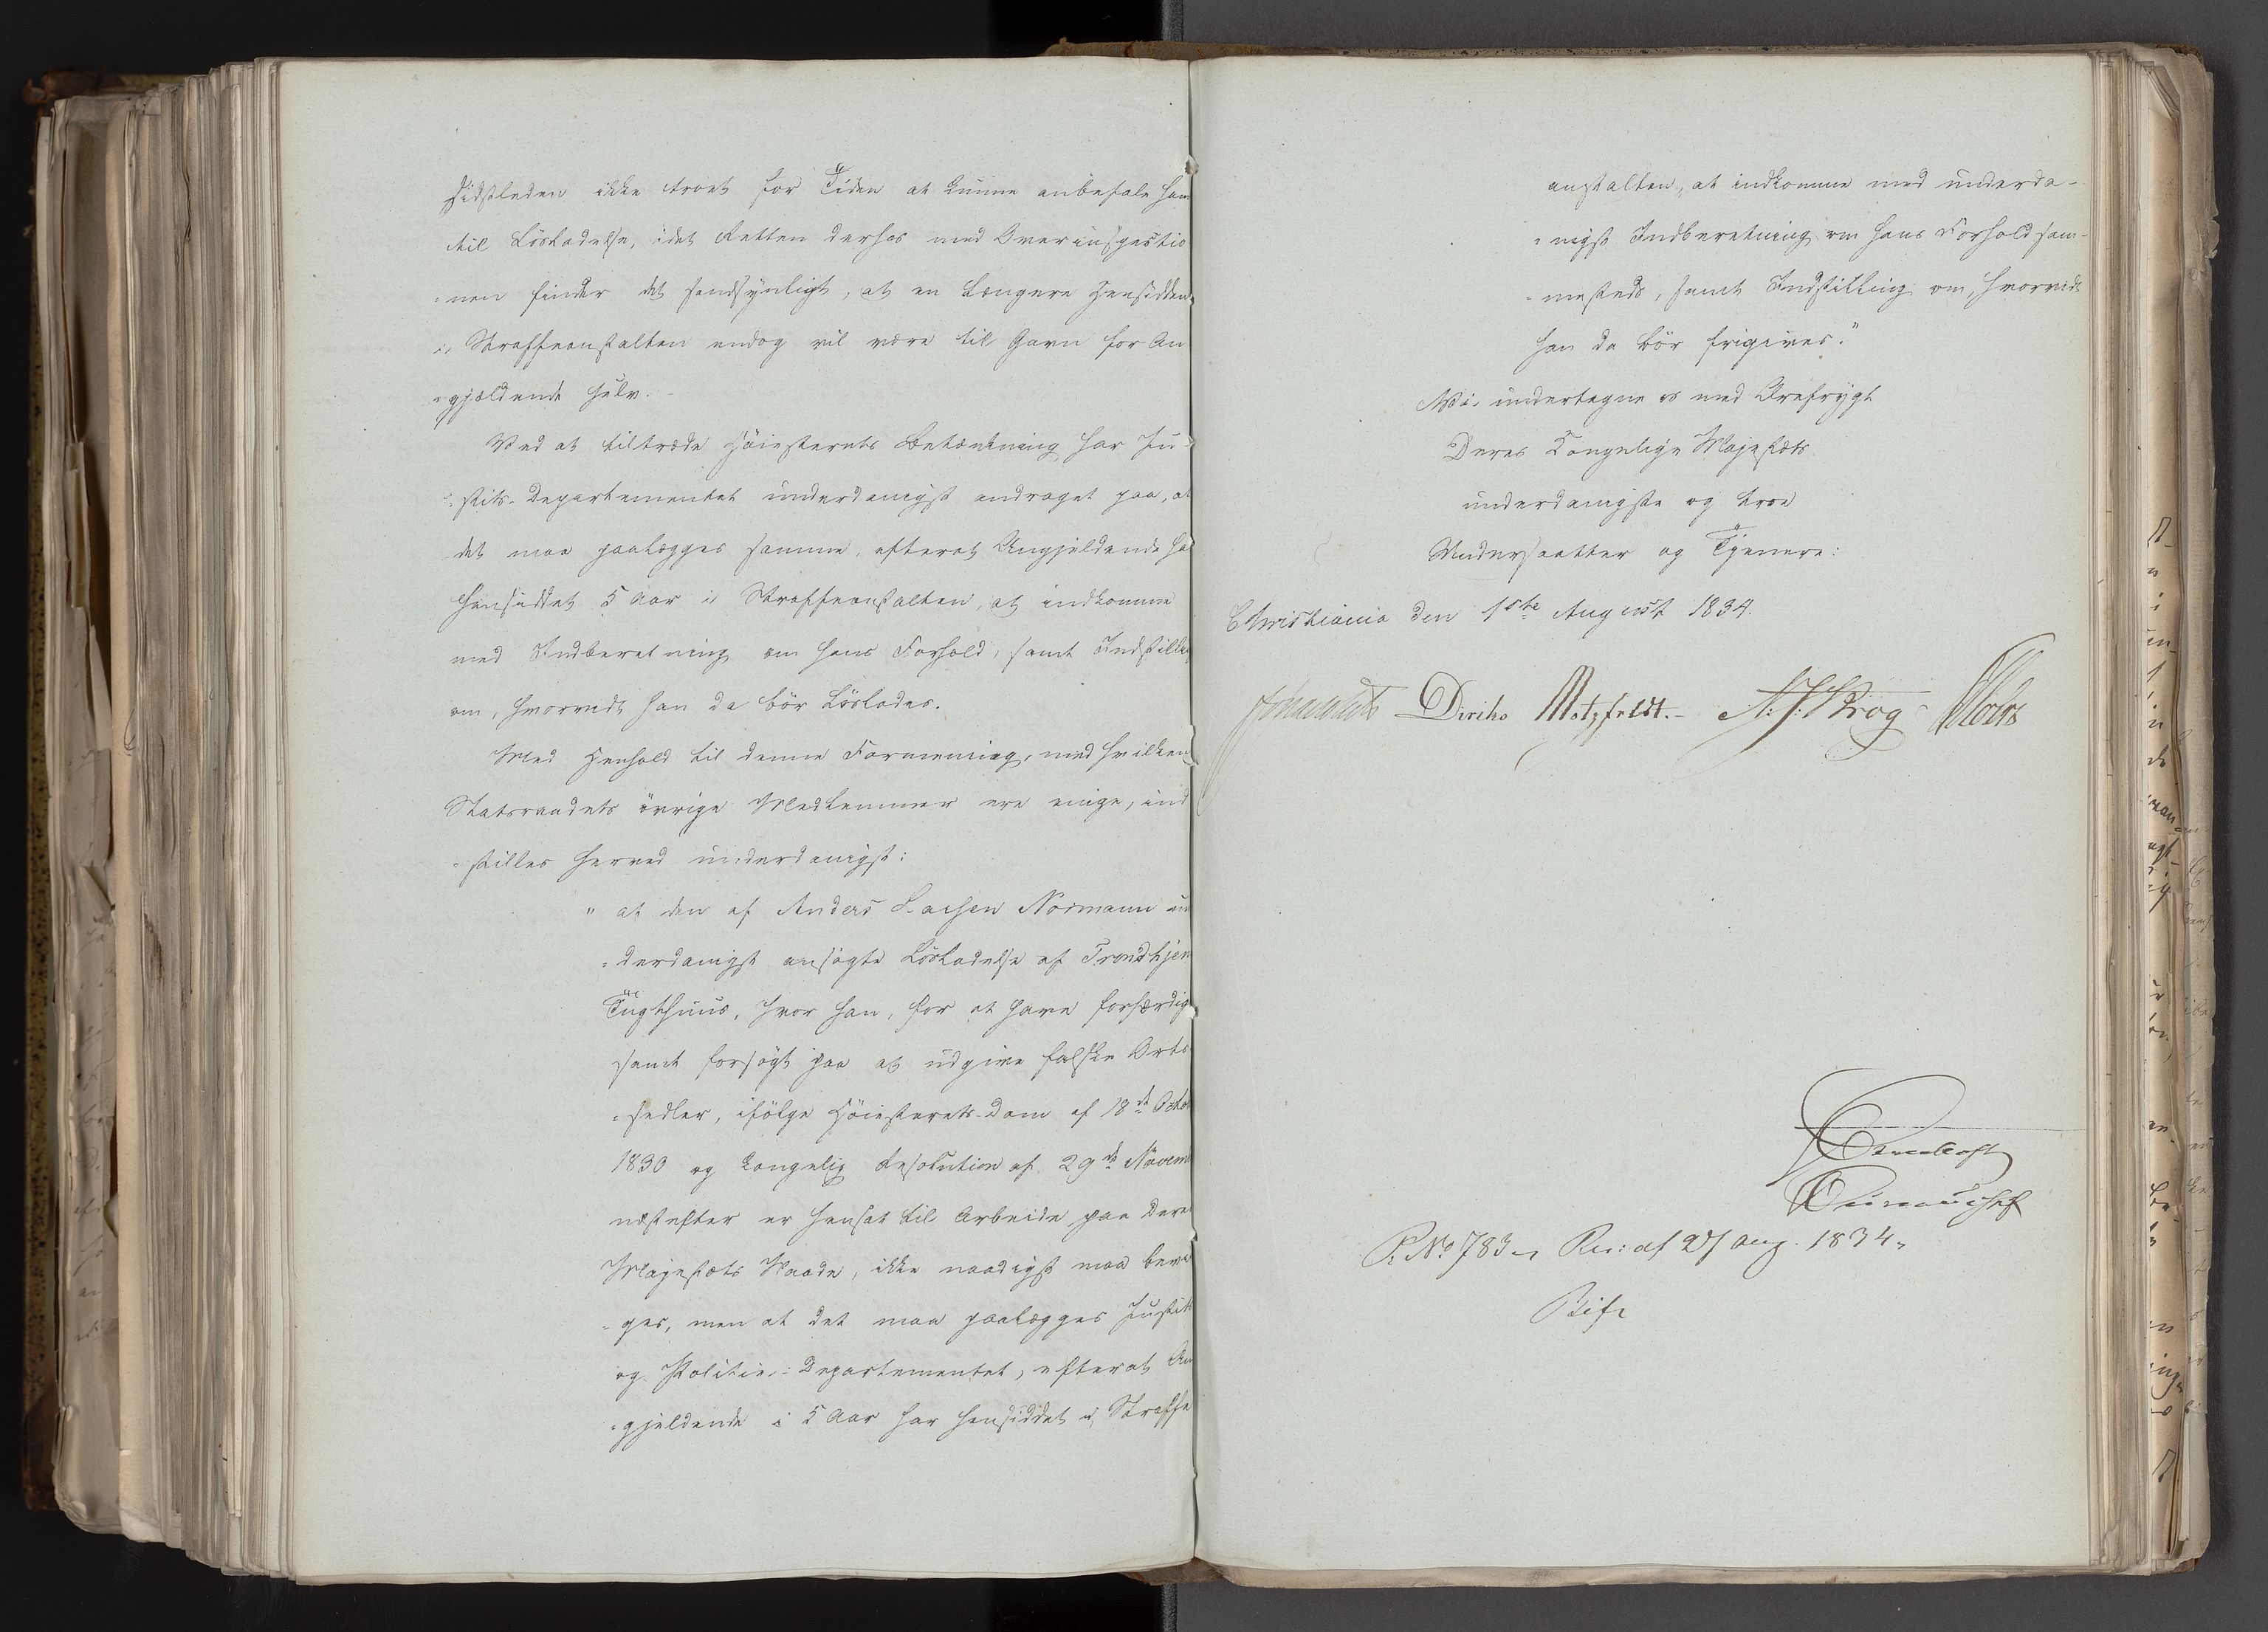 sidstleden ikke troet for Tiden at kunne anbefale ham
til Løsladelse, idet Retten derhos med Overinspectio
-nen finder det sandsynligt, at en længere Hensidden
i Straffeanstalten endog vil være til Gavn for An
-gjældende selv.
Ved at tiltræde Høiesterets Betænkning har Ju-
-stits-Departementet underdanigst andraget paa, at
det maa paalægges samme, efterat Angjeldende ha
hensiddet 5 Aar i Straffeanstalten, at indkomme
med Indberetning om hans Forhold, samt Indstilling
om, hvorvidt han da bør løslades.
Med Henhold til denne Formening, med hvilken
Statsraadets øvrige Medlemmer ere enige, ind
-stilles herved underdanigst:
" at den af Anders Larsen Normann un
-derdanigst ansøgte Løsladelse af Trondhjem
Tugthuus, hvor han, for at have forfærdig
samt forsøgt paa at udgive falske Orts
-sedler, ifølge Høiesterets-Dom af 18de Octob
1830 og kongelig Resolution af 29de Novem
næstefter er hensat til Arbeide paa Dere
Majestæts Naade, ikke naadigst maa bevil
-ges, men at det maa paalægges Justits
og Politie-Departementet, efterat An
-gjeldende i 5 Aar har hensiddet i Straffe
anstalten, at indkomme med underda-
-nigst Indberetning om hans Forhold sam-
-mesteds, samt Indstilling om, hvorvidt
han da bør frigives."
Vi undertegne os med Ærefrygt
Deres Kongelige Majestæts
underdanigste og troe
Undersaatter og Tjenere:
Christiania den 1ste August 1834.
Diriks Motzfeldt.- Krog
P. No 783 Res: af 27 Aug. 1834